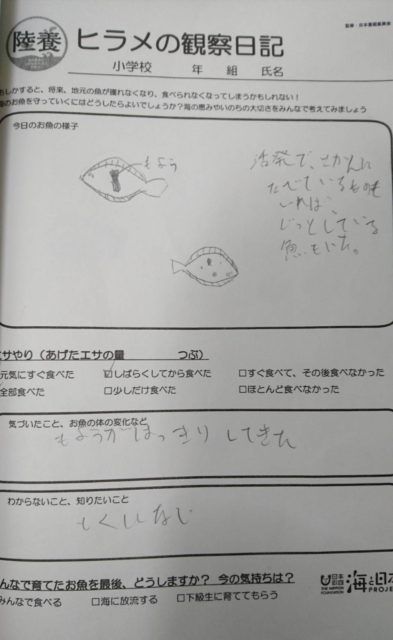 陸養
ヒラメの観察日記
小学校 年 組 氏名
もしかすると、将来、地元の魚が獲れなくなり、食べられなくなってしまうかもしれない!
海のお魚を守っていくにはどうしたらよいでしょうか?海の恵みやいのちの大切さをみんなで考えてみましょう
今日のお魚の様子
もよう
活発で、さかんに
たべているものも
いれば、
じっとしている
魚もいた。
エサやり(あげたエサの量 つぶ)
元気にすぐ食べた ☑しばらくしてから食べた □すぐ食べて、その後食べなかった
全部食べた □少しだけ食べた □ほとんど食べなかった
気づいたこと、お魚の体の変化など
もようがはっきりしてきた
わからないこと、知りたいこと
とくになし
みんなで育てたお魚を最後、どうしますか? 今の気持ちは?
みんなで食べる □海に放流する □下級生に育ててもらう
日本財団 THE NIPPON FOUNDATION 海と日本 PROJE